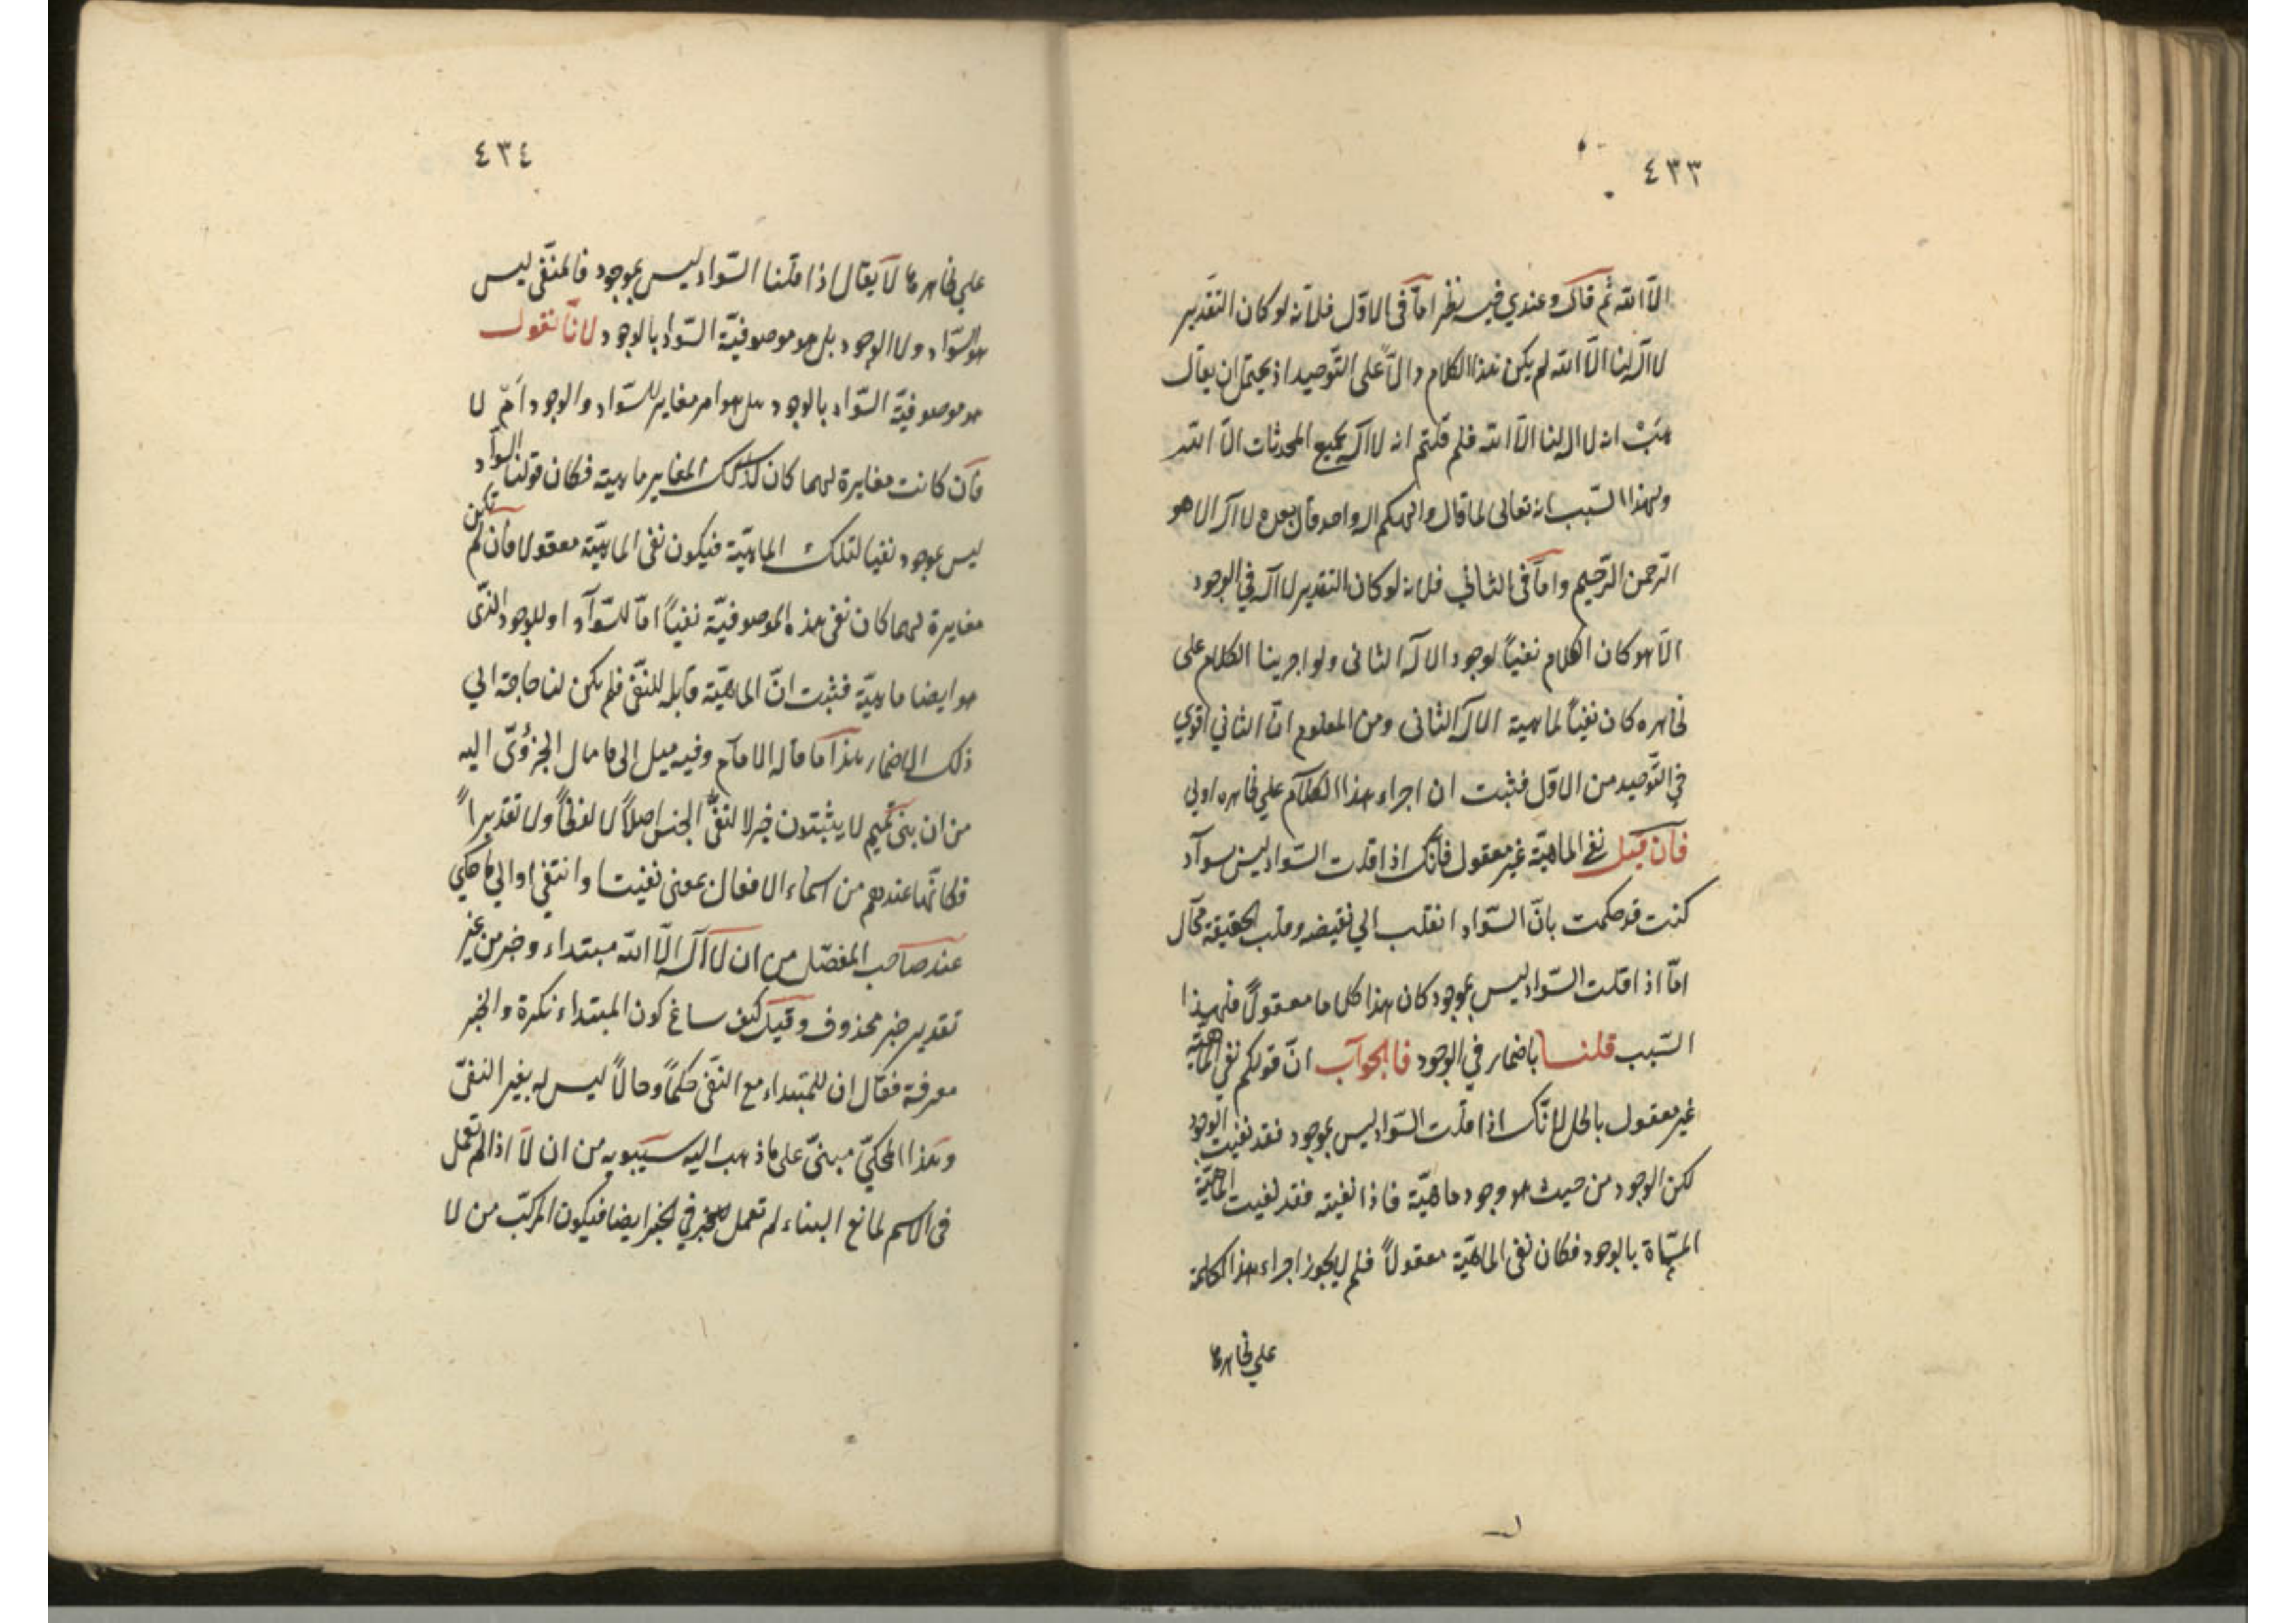 ٤٣٣
الّا الله ثم قال وعندي فيه نظر امّا في الاوّل فلانّه لو كان التقدير
لا اله لنا الّا الله لم يكن هذا الكلام دالّاً على التّوحيد اذ يحتمل ان يقال
هَبْ انه لا اله لنا الّا الله فلم قلتم انه لا اله بجميع المحدثات الّا الله
ولهذا السّبب انه تعالى لما قال والهكم اله واحد قال بعده لا اله الا هو
الرّحمن الرّحيم وامّا في الثاني فلانه لو كان التقدير لا اله في الوجود
الّا هو كان الكلام نفياً لوجود الاله الثاني ولو اجرينا الكلام على
ظاهره كان نفياً لماهية الاله الثاني ومن المعلوم انّ الثاني اقوي
في التّوحيد من الاوّل فثبت ان اجراء هذا الكلام علي ظاهره اولي
فان قيل نفي الماهيّة غير معقول فانّك اذا قلت السّواد ليس سواد
كنت قد حكمت بانّ السّواد انقلب الي نقيضه وقلب الحقيقة محال
امّا اذا قلت السّواد ليس بموجود كان هذا كلاما معقولاً فلهذا
السّبب قلنا باضمار في الوجود فالجواب انّ قولكم نفي الماهيّة
غير معقول باطل لانّك اذا قلت السّواد ليس بموجود فقد نفيت الوجود
لكن الوجود من حيث هو وجود ماهيّة فاذا نفيته فقد نفيت الماهيّة
المسّماة بالوجود فكان نفي الماهيّة معقولاً فلم لا يجوز اجراء هذا الكلمة
علي ظاهرها
٤٣٤
علي ظاهرها لا يقال اذا قلنا السّواد ليس بموجود فالمنفّى ليس
هو السّواد ولا الوجود بل هو موصوفيّة السّواد بالوجود لانّا نقول
موصوفيّة السّواد بالوجود هل هو امر مغاير للسّواد والوجود اَمْ لا
فان كانت مغايرة لهما كان لذلك المغاير ماهية فكان قولنا السّواد
ليس بموجود نفيا لتلك الماهيّة فيكون نفى الماهيّة معقولا فان لم تكن
مغايرة لهما كان نفى هذه الموصوفيّة نفياً امّا للسّواد او للوجود الذى
هو ايضا ماهيّة فثبت انّ الماهيّة قابلة للنفى فلم يكن لنا حاجة الي
ذلك الاضمار هذا ما قاله الامام وفيه ميل الى ما مال الجزوُلىّ اليه
من ان بنى تميم لا يثبتون خبر لا لنفى الجنس اصلاً لا لفظاً ولا تقديراً
فكانّها عندهم من اسماء الافعال بمعنى نفيت وانتفي او الي ما حكي
عند صاحب المفصّل من ان لا اله الّا الله مبتداء وخبر من غير
تقدير خبر محذوف وقيل كيف ساغ كون المبتداء نكرة والخبر
معرفة فقال ان للمبتداء مع النفى حكماً وحالاً ليس له بغير النفى
وهذا المحكيّ مبنىّ على ما ذهب اليه سيبويه من ان لا اذا لم تعمل
فى الاسم لمانع البناء لم تعمل في الخبر ايضا فيكون المركّب من لا